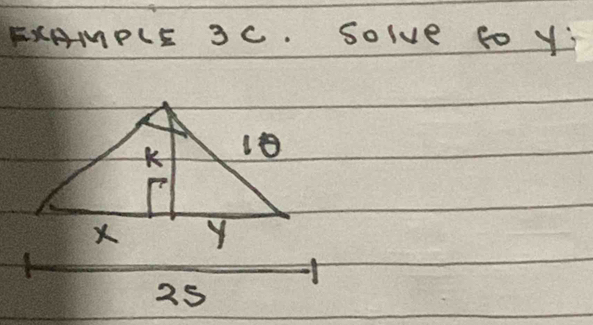 EXAMPLE 3C. Solve fo y:
10
K
x y
25